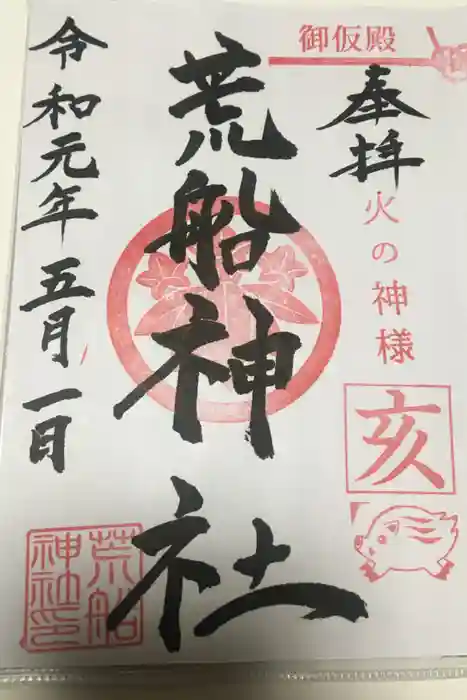 御仮殿
奉拝
火の神様
亥
荒船神社
令和元年五月一日
荒船
神社印